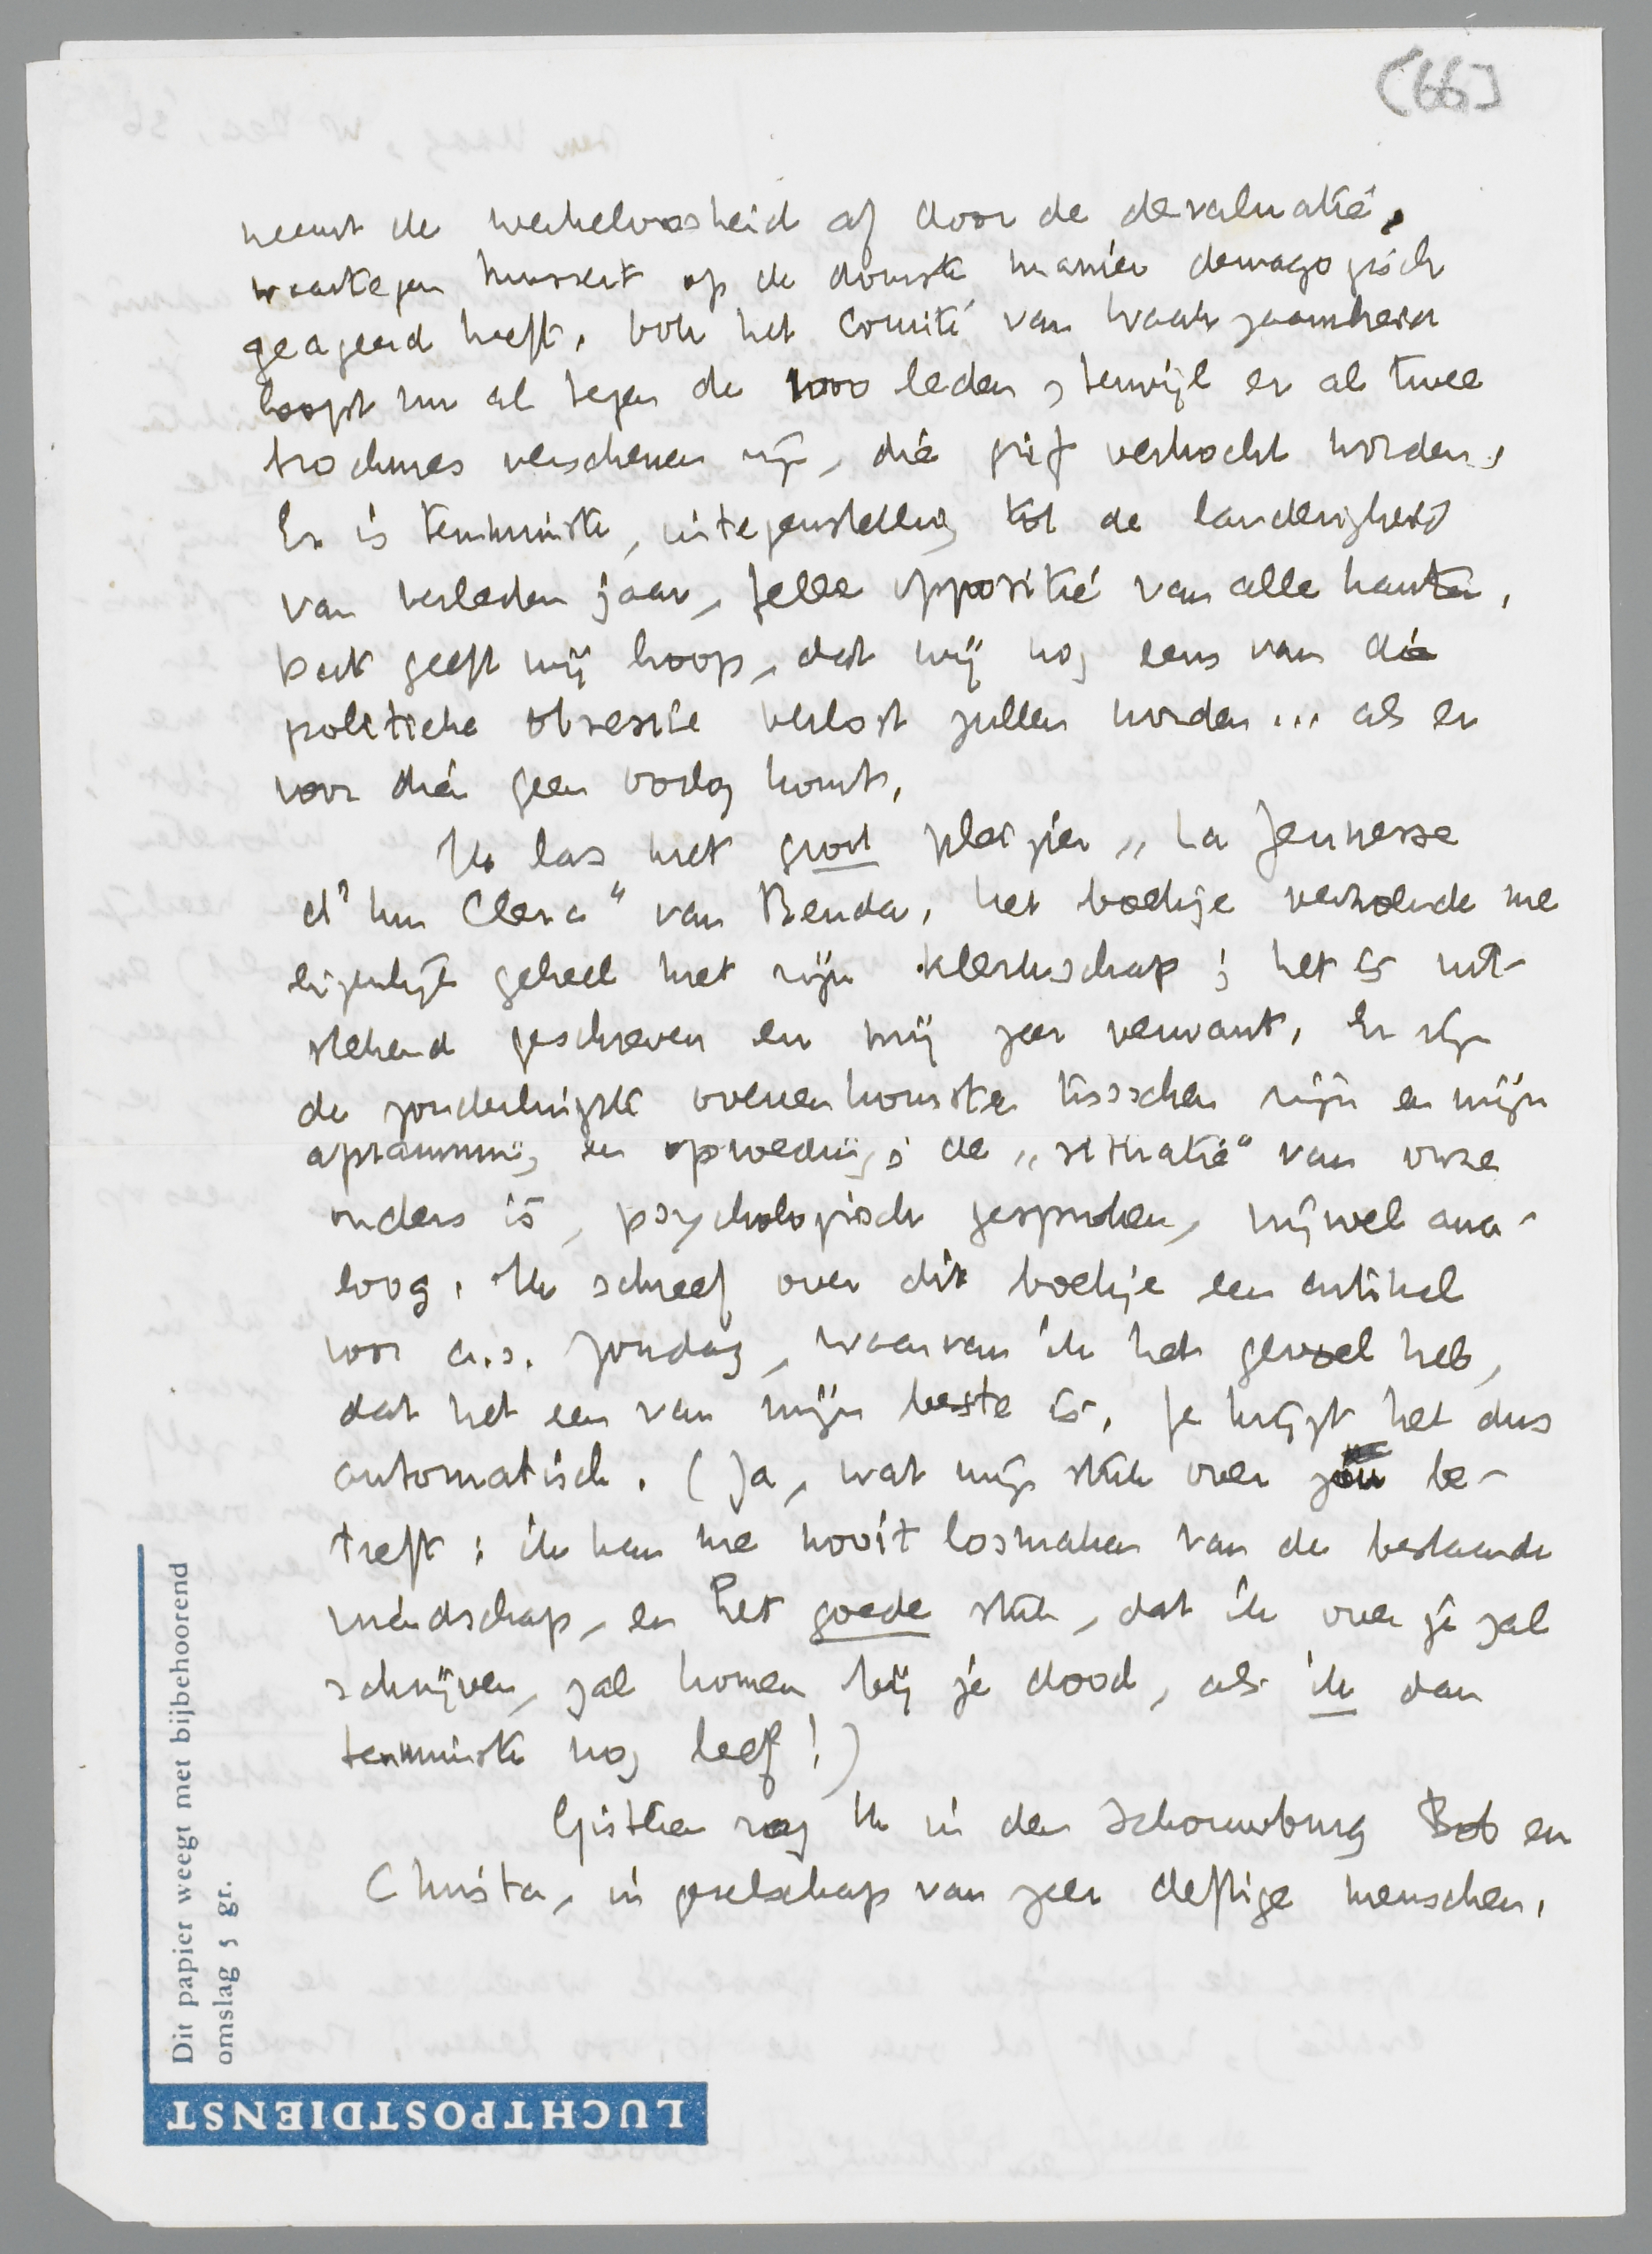 (66)
neemt de werkeloosheid af door de devaluatie,
waartegen Mussert op de domste manier demagogisch
geageerd heeft. Ook het Comité van Waakzaamheid
loopt nu al tegen de 1000 leden, terwijl er al twee
brochures verschenen zijn, die grif verkocht worden.
Er is tenminste, in tegenstelling tot de landerigheid
van verleden jaar, felle oppositie van alle kanten.
Dat geeft mij hoop, dat wij nog eens van die
politieke obsessie verlost zullen worden... als er
voor dien geen oorlog komt.
Ik las met groot pleizier „La Jeunesse
d'un Clerc" van Benda. Het boekje verzoende me
eigenlijk geheel met zijn klerkschap; het is uit-
stekend geschreven en mij zeer verwant. Er zijn
de zonderlingste overeenkomsten tusschen zijn en mijn
afstamming en opvoeding; de „situatie" van onze
ouders is, psychologisch gesproken, vrijwel ana-
loog. Ik schreef over dit boekje een artikel
voor a.s. Zondag, waarvan ik het gevoel heb,
dat het een van mijn beste is. Je krijgt het dus
automatisch. (Ja, wat mijn stuk over jou be-
treft: ik kan me nooit losmaken van de bestaande
vriendschap, en het goede stuk, dat ik over je zal
schrijven, zal komen bij je dood, als ik dan
tenminste nog leef!)
Gisteren zag ik in den Schouwburg Bob en
Christa, in gezelschap van zeer deftige menschen.
Dit papier weegt met bijbehoorend
omslag 5 gr.
LUCHTPOSTDIENST